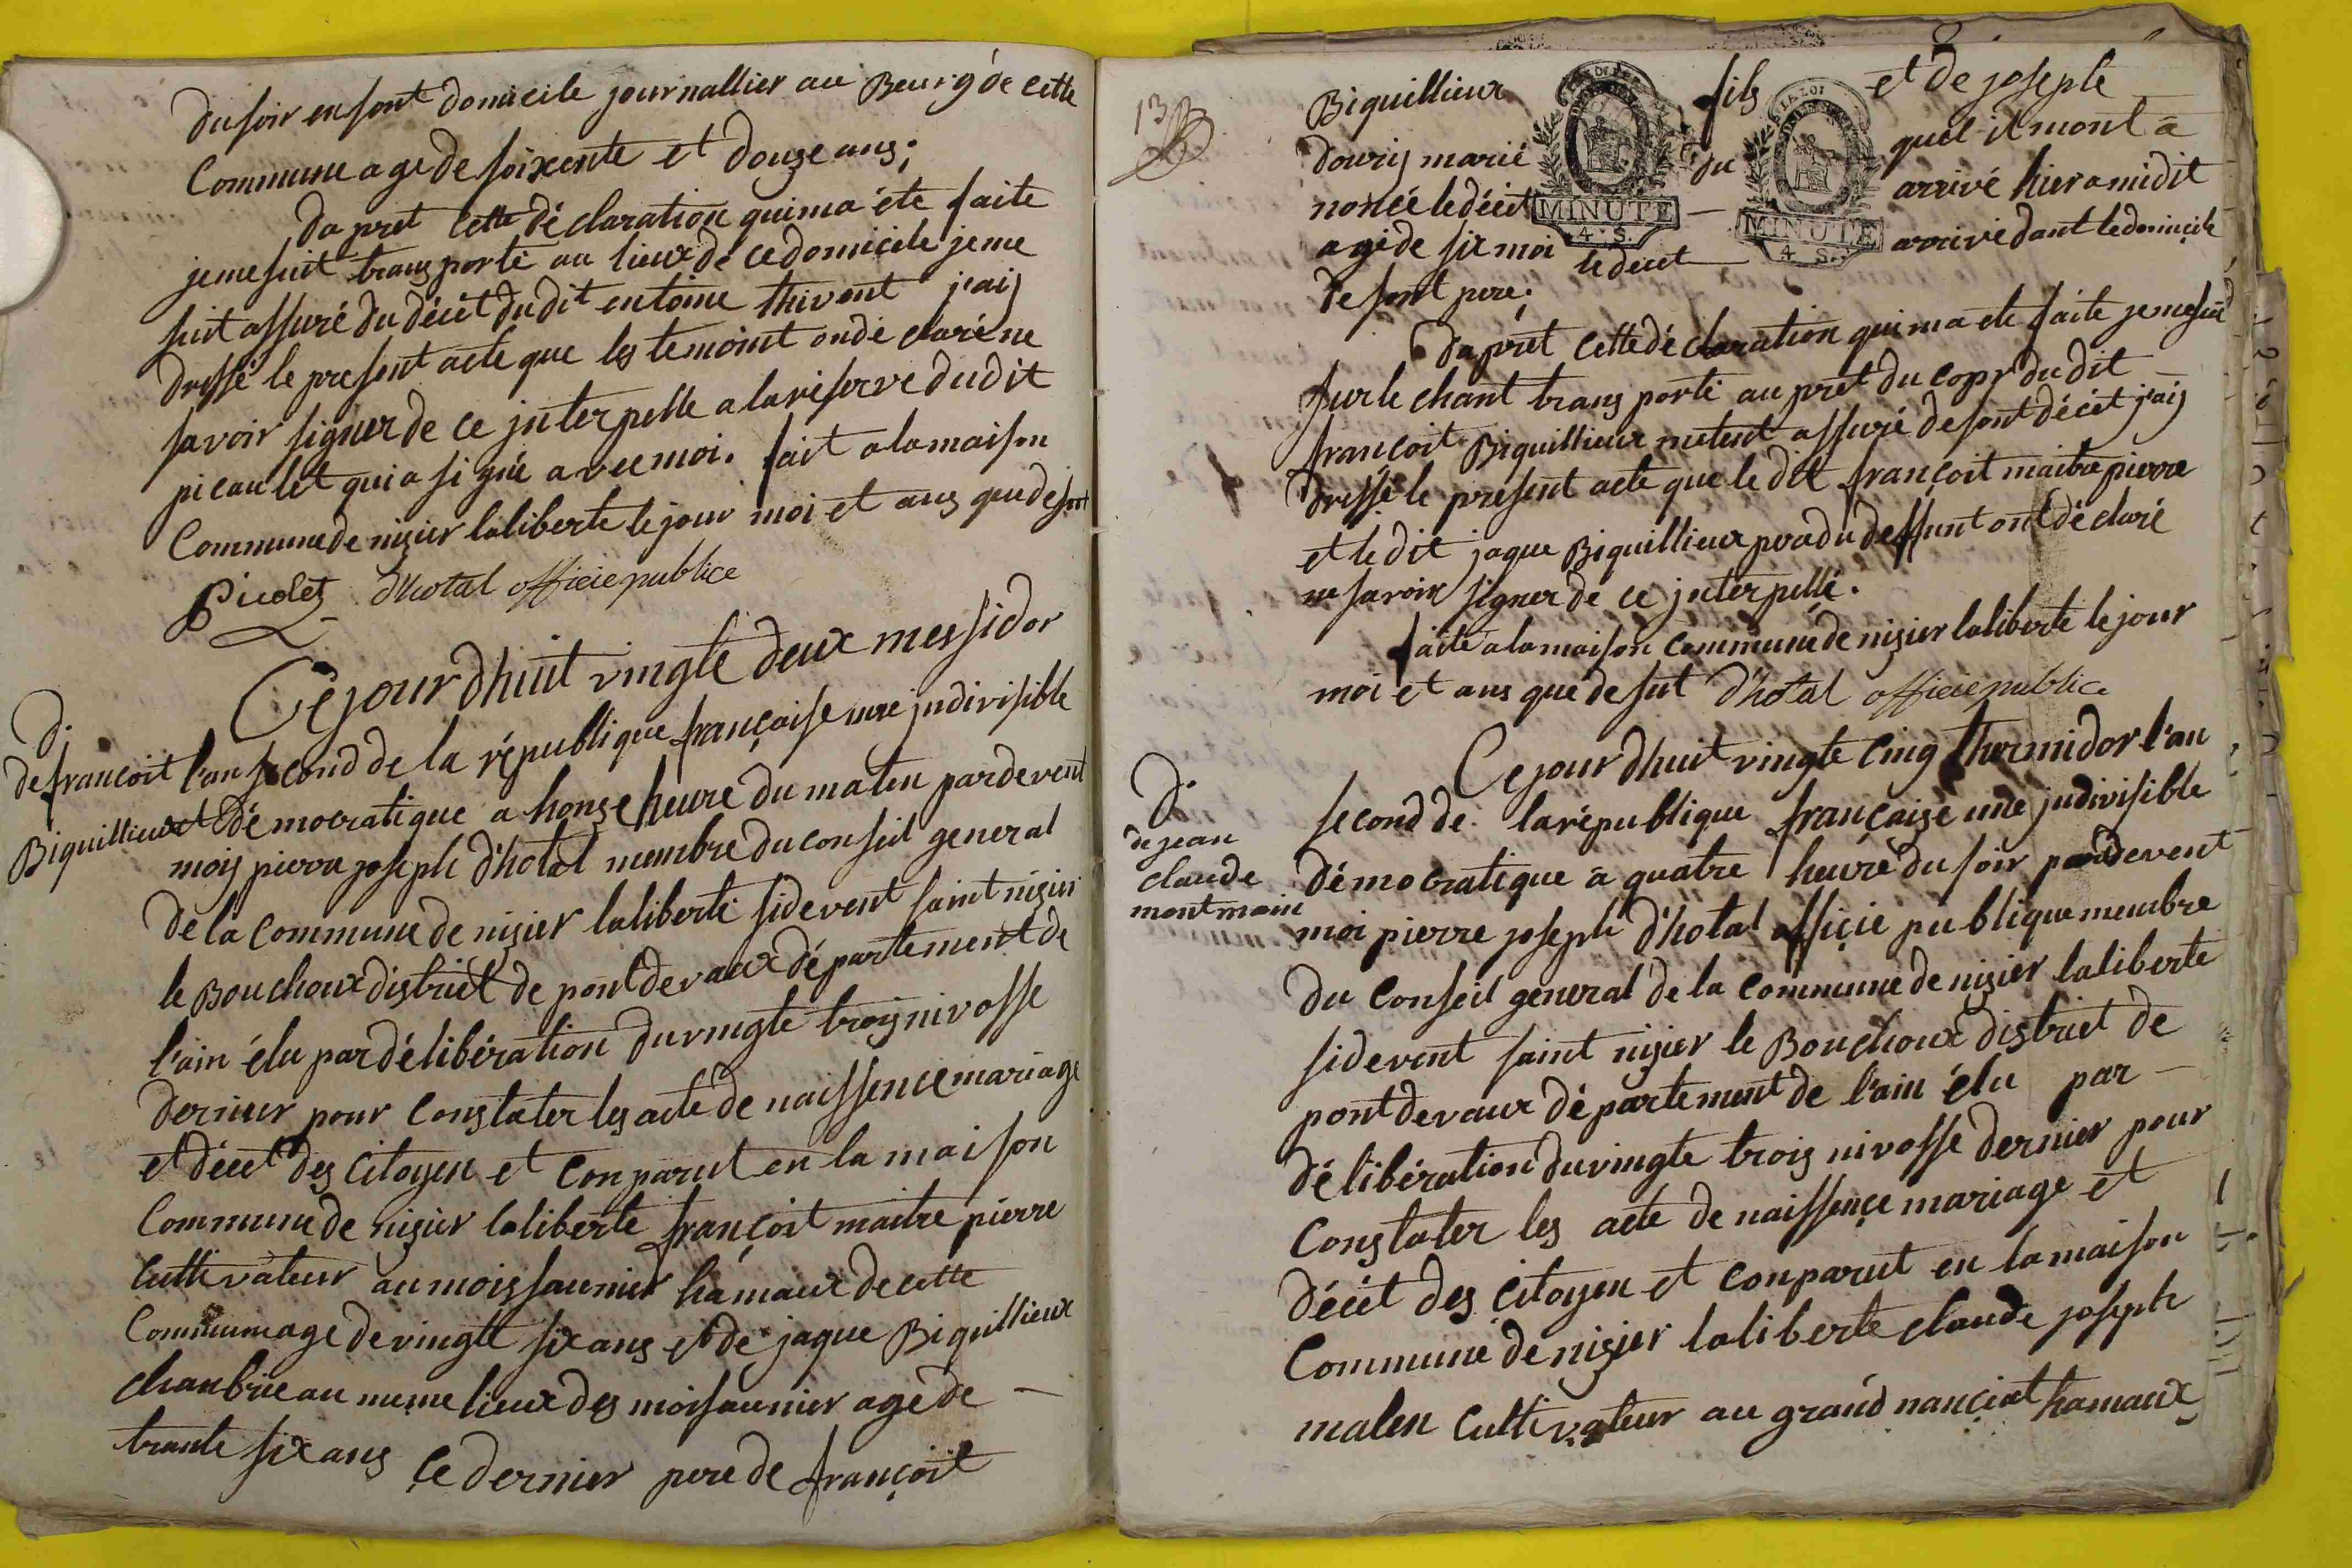 du soir en sont domicile journallier au Bourg de cette
Commune age de soixente et douze ans;
da pret cette déclaration qui ma été faite
je me suit transporté au lieux de ce domicile je me
suit assuré du décet du dit entoine thivent j'aij
dressé le present acte que les temoint on déclaré ne
savoir signer de ce jnterpelle a la reserve du dit
picaulet qui a signé avec moi. fait a la maison
Commune de nizier laliberte le jour moi et ans que desut
Picolet d'hotal officie publice
Ce jour dhuit vingte deux messidor
D.
de francoit
Biquillieux
l'an second de la république françoise une jndivisible
démocratique a honze heure du maten pardevent
moij pierre joseph d'hotal membre du conseil general
de la commune de nizier laliberté sidevent saint nizier
le Bouchoux district de pontdevaux département de
l'ain élu par délibération du vingte trois nivosse
dernier pour constater les acte de naissence mariage
et décet des Citoyen et conparut en la maison
Commune de nizier laliberte françoit maitre pierre
Cultivateur au moissaunier hamaux de cette
Commune age de vingte six ans et de jaque Biquillieux
chanbrie au meme lieux des moisaunier agé de —
trante six ans ce dernier pere de françoit
13
Biquillieux fils et de joseple
dourij marié du quel il mont a
noncé le décet — arrivé hier a midit
agé de six moi le décet — arrivé dant le domicile
de sont pere.
MINUTE
4. S.
MINUTE
4 S.
da prêt cette déclaration qui ma été faite je me suit
sur le chant transporté au prêt du copr du dit —
françoit Biquillieux metent assuré de sont décet j'aij
dressé le présent acte que le dit françoit maitre pierre
et le dit jaque Biquillieux pere du deffunt ont déclaré
ne savoir signer de ce jnterpellé.
faite a la maison commune de nizier laliberte le jour
moi et ans que desut d'hotal officie publice
Ce jour dhuit vingte cinq thermidor l'an
D.
de jean
claude
montmain
second de la république françaize une jndivisible
démocratique à quatre heure du soir pardevent
moi pierre joseph d'hotal officie publique membre
du Conseil general de la Commune de nizier laliberte
sidevent saint nizier le Bouchoux district de
pontdevaux département de l'ain élu par —
délibération du vingte trois nivosse dernier pour
Constater les acte de naissençe mariage et
décét des Citoyen et conparut en la maison
Commune de nizier laliberte claude joseph
malen Cultivateur au grand nançiat hamaux